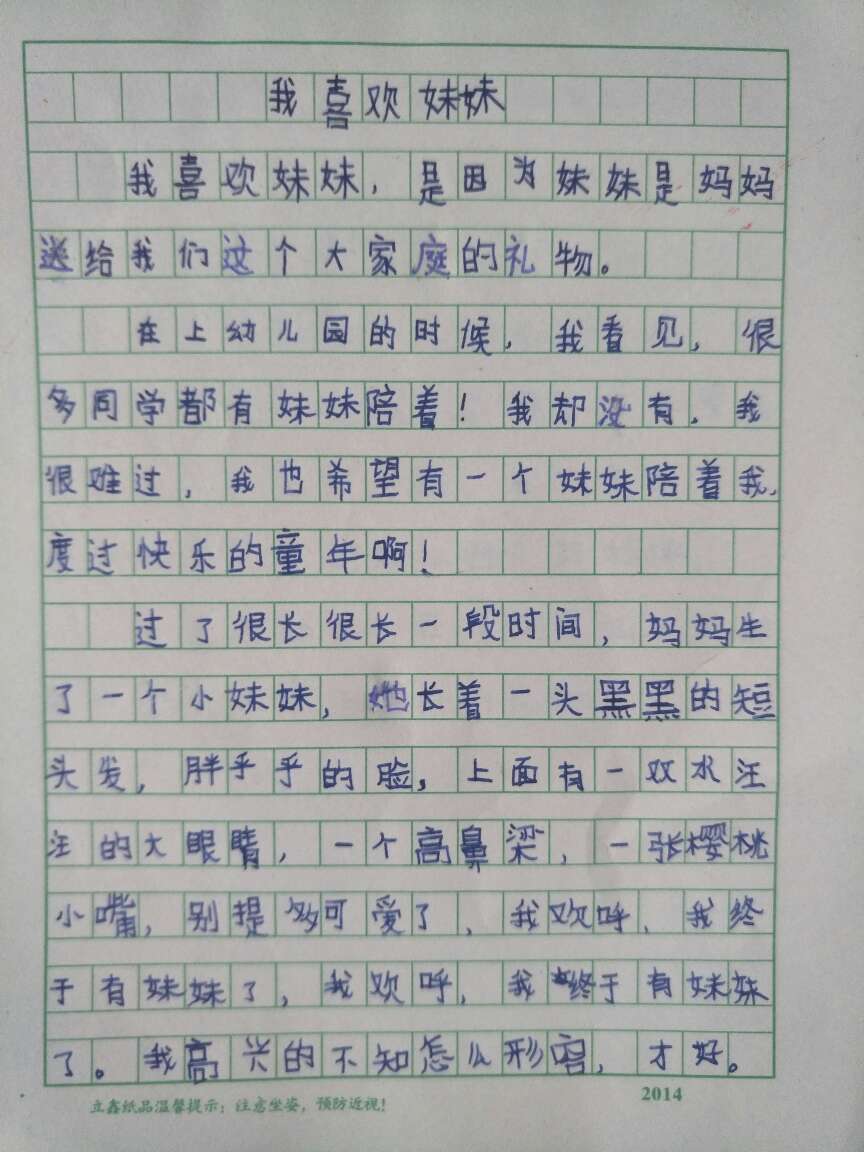 我喜欢妹妹
我喜欢妹妹，是因为妹妹是妈妈
送给我们这个大家庭的礼物。
在上幼儿园的时候，我看见，很
多同学都有妹妹陪着！我却没有，我
很难过，我也希望有一个妹妹陪着我，
度过快乐的童年啊！
过了很长很长一段时间，妈妈生
了一个小妹妹，她长着一头黑黑的短
头发，胖乎乎的脸，上面有一双水汪
汪的大眼睛，一个高鼻梁，一张樱桃
小嘴，别提多可爱了，我欢呼，我终
于有妹妹了，我欢呼，我终于有妹妹
了。我高兴的不知怎么形容，才好。
立鑫纸品温馨提示：注意坐姿，预防近视！ 2014